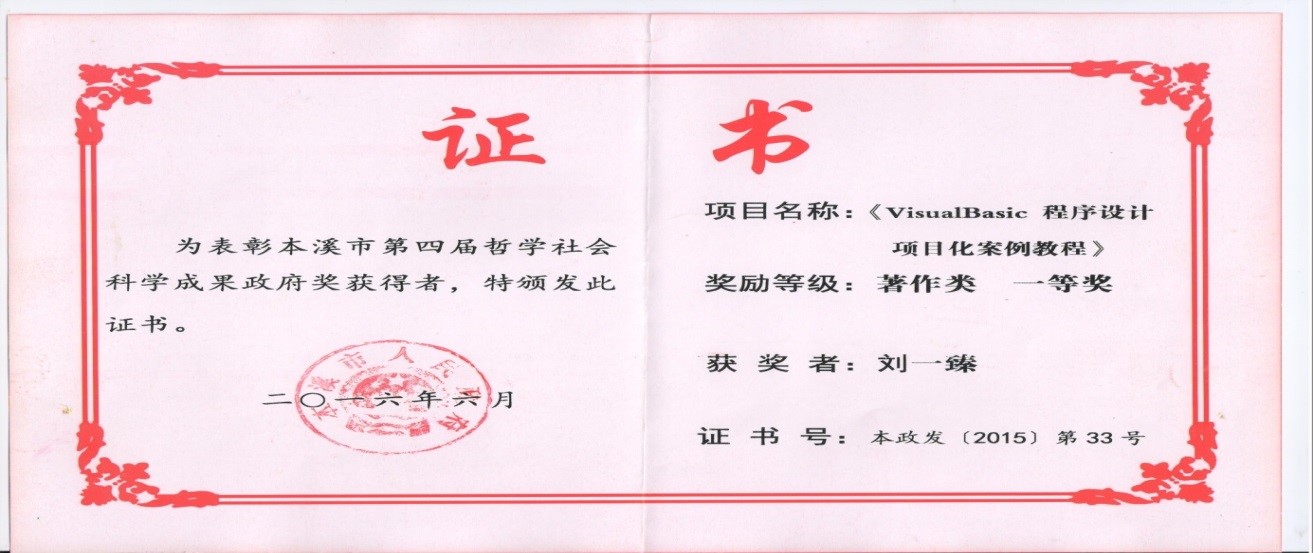 证 书
为表彰本溪市第四届哲学社会
科学成果政府奖获得者，特颁发此
证书。
本溪市人民政府
二〇一六年六月
项目名称：《VisualBasic 程序设计
项目化案例教程》
奖励等级：著作类 一等奖
获 奖 者：刘一臻
证 书 号：本政发〔2015〕第 33 号